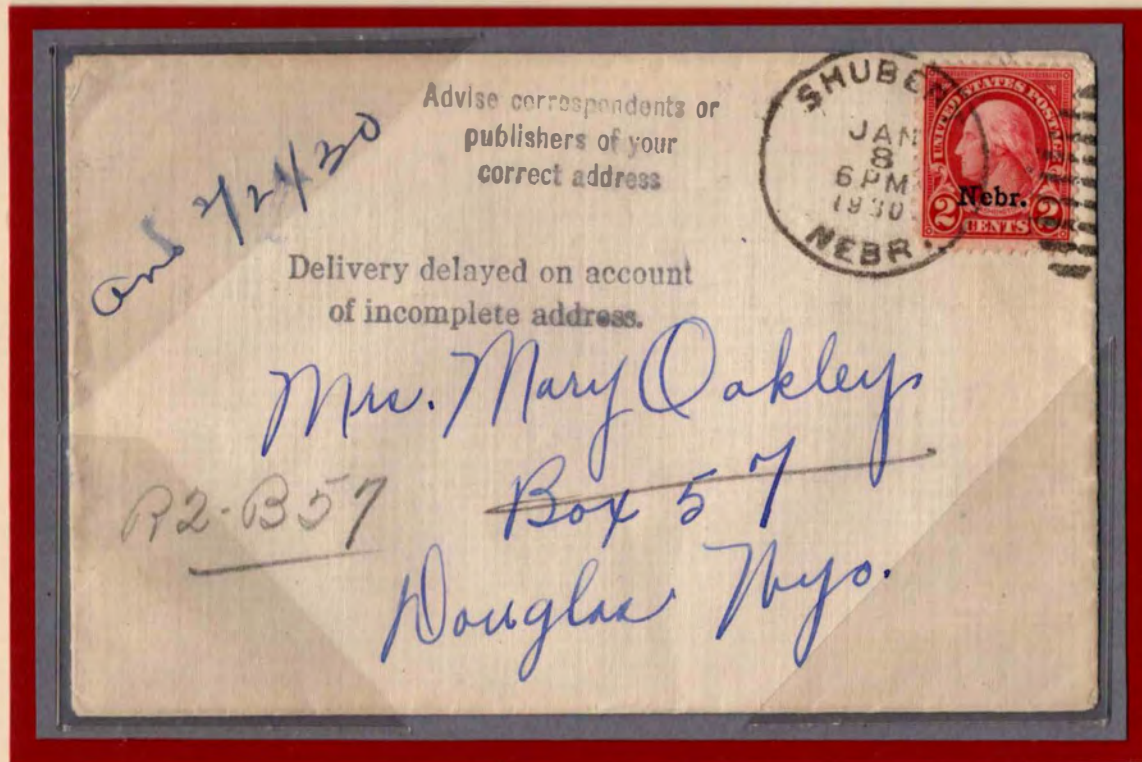 Advise correspondents or
publishers of your
correct address
SHUBER
JAN
8
6 PM
1930
NEBR.
UNITED STATES POSTAGE
Nebr.
2 CENTS 2
Delivery delayed on account
of incomplete address.
Mrs. Mary Oakley
Box 57
R2-B57
Douglas Wyo.